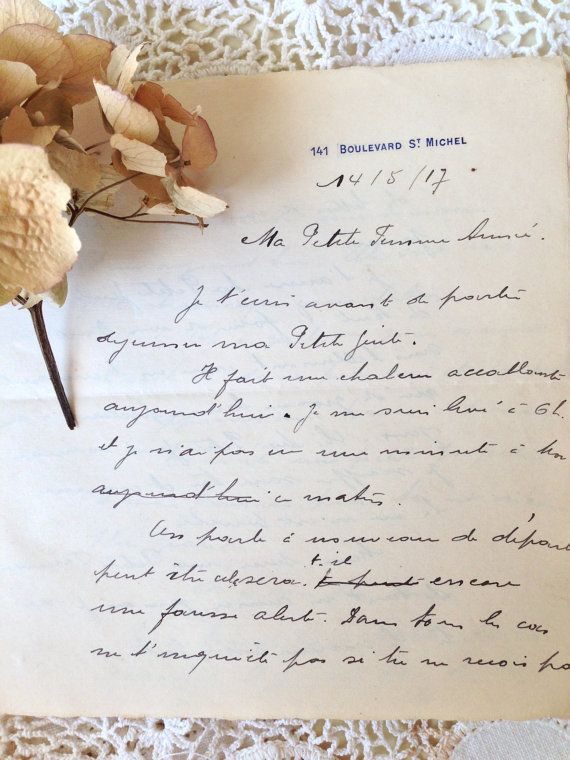 141 BOULEVARD ST MICHEL
14/5/17
Ma Petite Femme Aimée.
Je t'écris avant de partir
dejeuner ma Petite
Il fait une chaleur accablante
aujourd'hui. Je me suis levé à 6h.
et je n'ai pas eu une minute à
aujourd'hui ce matin.
On parle à nouveau de
peut être cela sera t-il encore
une fausse alerte. Dans tous les cas
ne t'inquiète pas si tu ne reçois